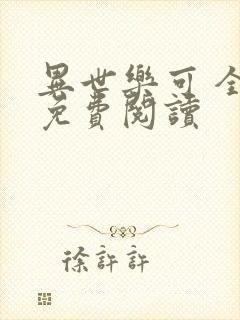 異世樂可 全
免費閱讀
徐許許